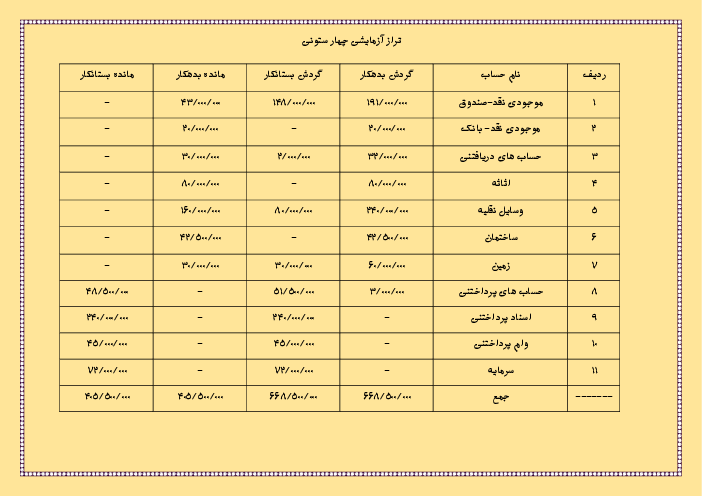 تراز آزمایشی چهار ستونی
ردیف نام حساب گردش بدهکار گردش بستانکار مانده بدهکار مانده بستانکار
۱ موجودی نقد-صندوق ۱۹۱/۰۰۰/۰۰۰ ۱۴۸/۰۰۰/۰۰۰ ۴۳/۰۰۰/۰۰۰ -
۲ موجودی نقد- بانک ۲۰/۰۰۰/۰۰۰ - ۲۰/۰۰۰/۰۰۰ -
۳ حساب های دریافتنی ۳۲/۰۰۰/۰۰۰ ۲/۰۰۰/۰۰۰ ۳۰/۰۰۰/۰۰۰ -
۴ اثاثه ۸۰/۰۰۰/۰۰۰ - ۸۰/۰۰۰/۰۰۰ -
۵ وسایل نقلیه ۲۴۰/۰۰۰/۰۰۰ ۸۰/۰۰۰/۰۰۰ ۱۶۰/۰۰۰/۰۰۰ -
۶ ساختمان ۴۲/۵۰۰/۰۰۰ - ۴۲/۵۰۰/۰۰۰ -
۷ زمین ۶۰/۰۰۰/۰۰۰ ۳۰/۰۰۰/۰۰۰ ۳۰/۰۰۰/۰۰۰ -
۸ حساب های پرداختنی ۳/۰۰۰/۰۰۰ ۵۱/۵۰۰/۰۰۰ - ۴۸/۵۰۰/۰۰۰
۹ اسناد پرداختنی - ۲۴۰/۰۰۰/۰۰۰ - ۲۴۰/۰۰۰/۰۰۰
۱۰ وام پرداختنی - ۴۵/۰۰۰/۰۰۰ - ۴۵/۰۰۰/۰۰۰
۱۱ سرمایه - ۷۲/۰۰۰/۰۰۰ - ۷۲/۰۰۰/۰۰۰
------- جمع ۶۶۸/۵۰۰/۰۰۰ ۶۶۸/۵۰۰/۰۰۰ ۴۰۵/۵۰۰/۰۰۰ ۴۰۵/۵۰۰/۰۰۰